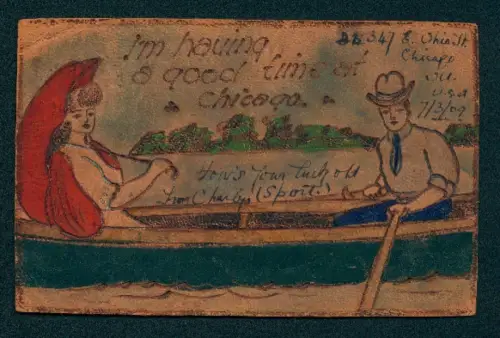 I'm having
a good time at
Chicago.
347 E. Ohio St.
Chicago
Ill.
U.S.A
7/3/09
How's your luck old
from Charley (Sport.)